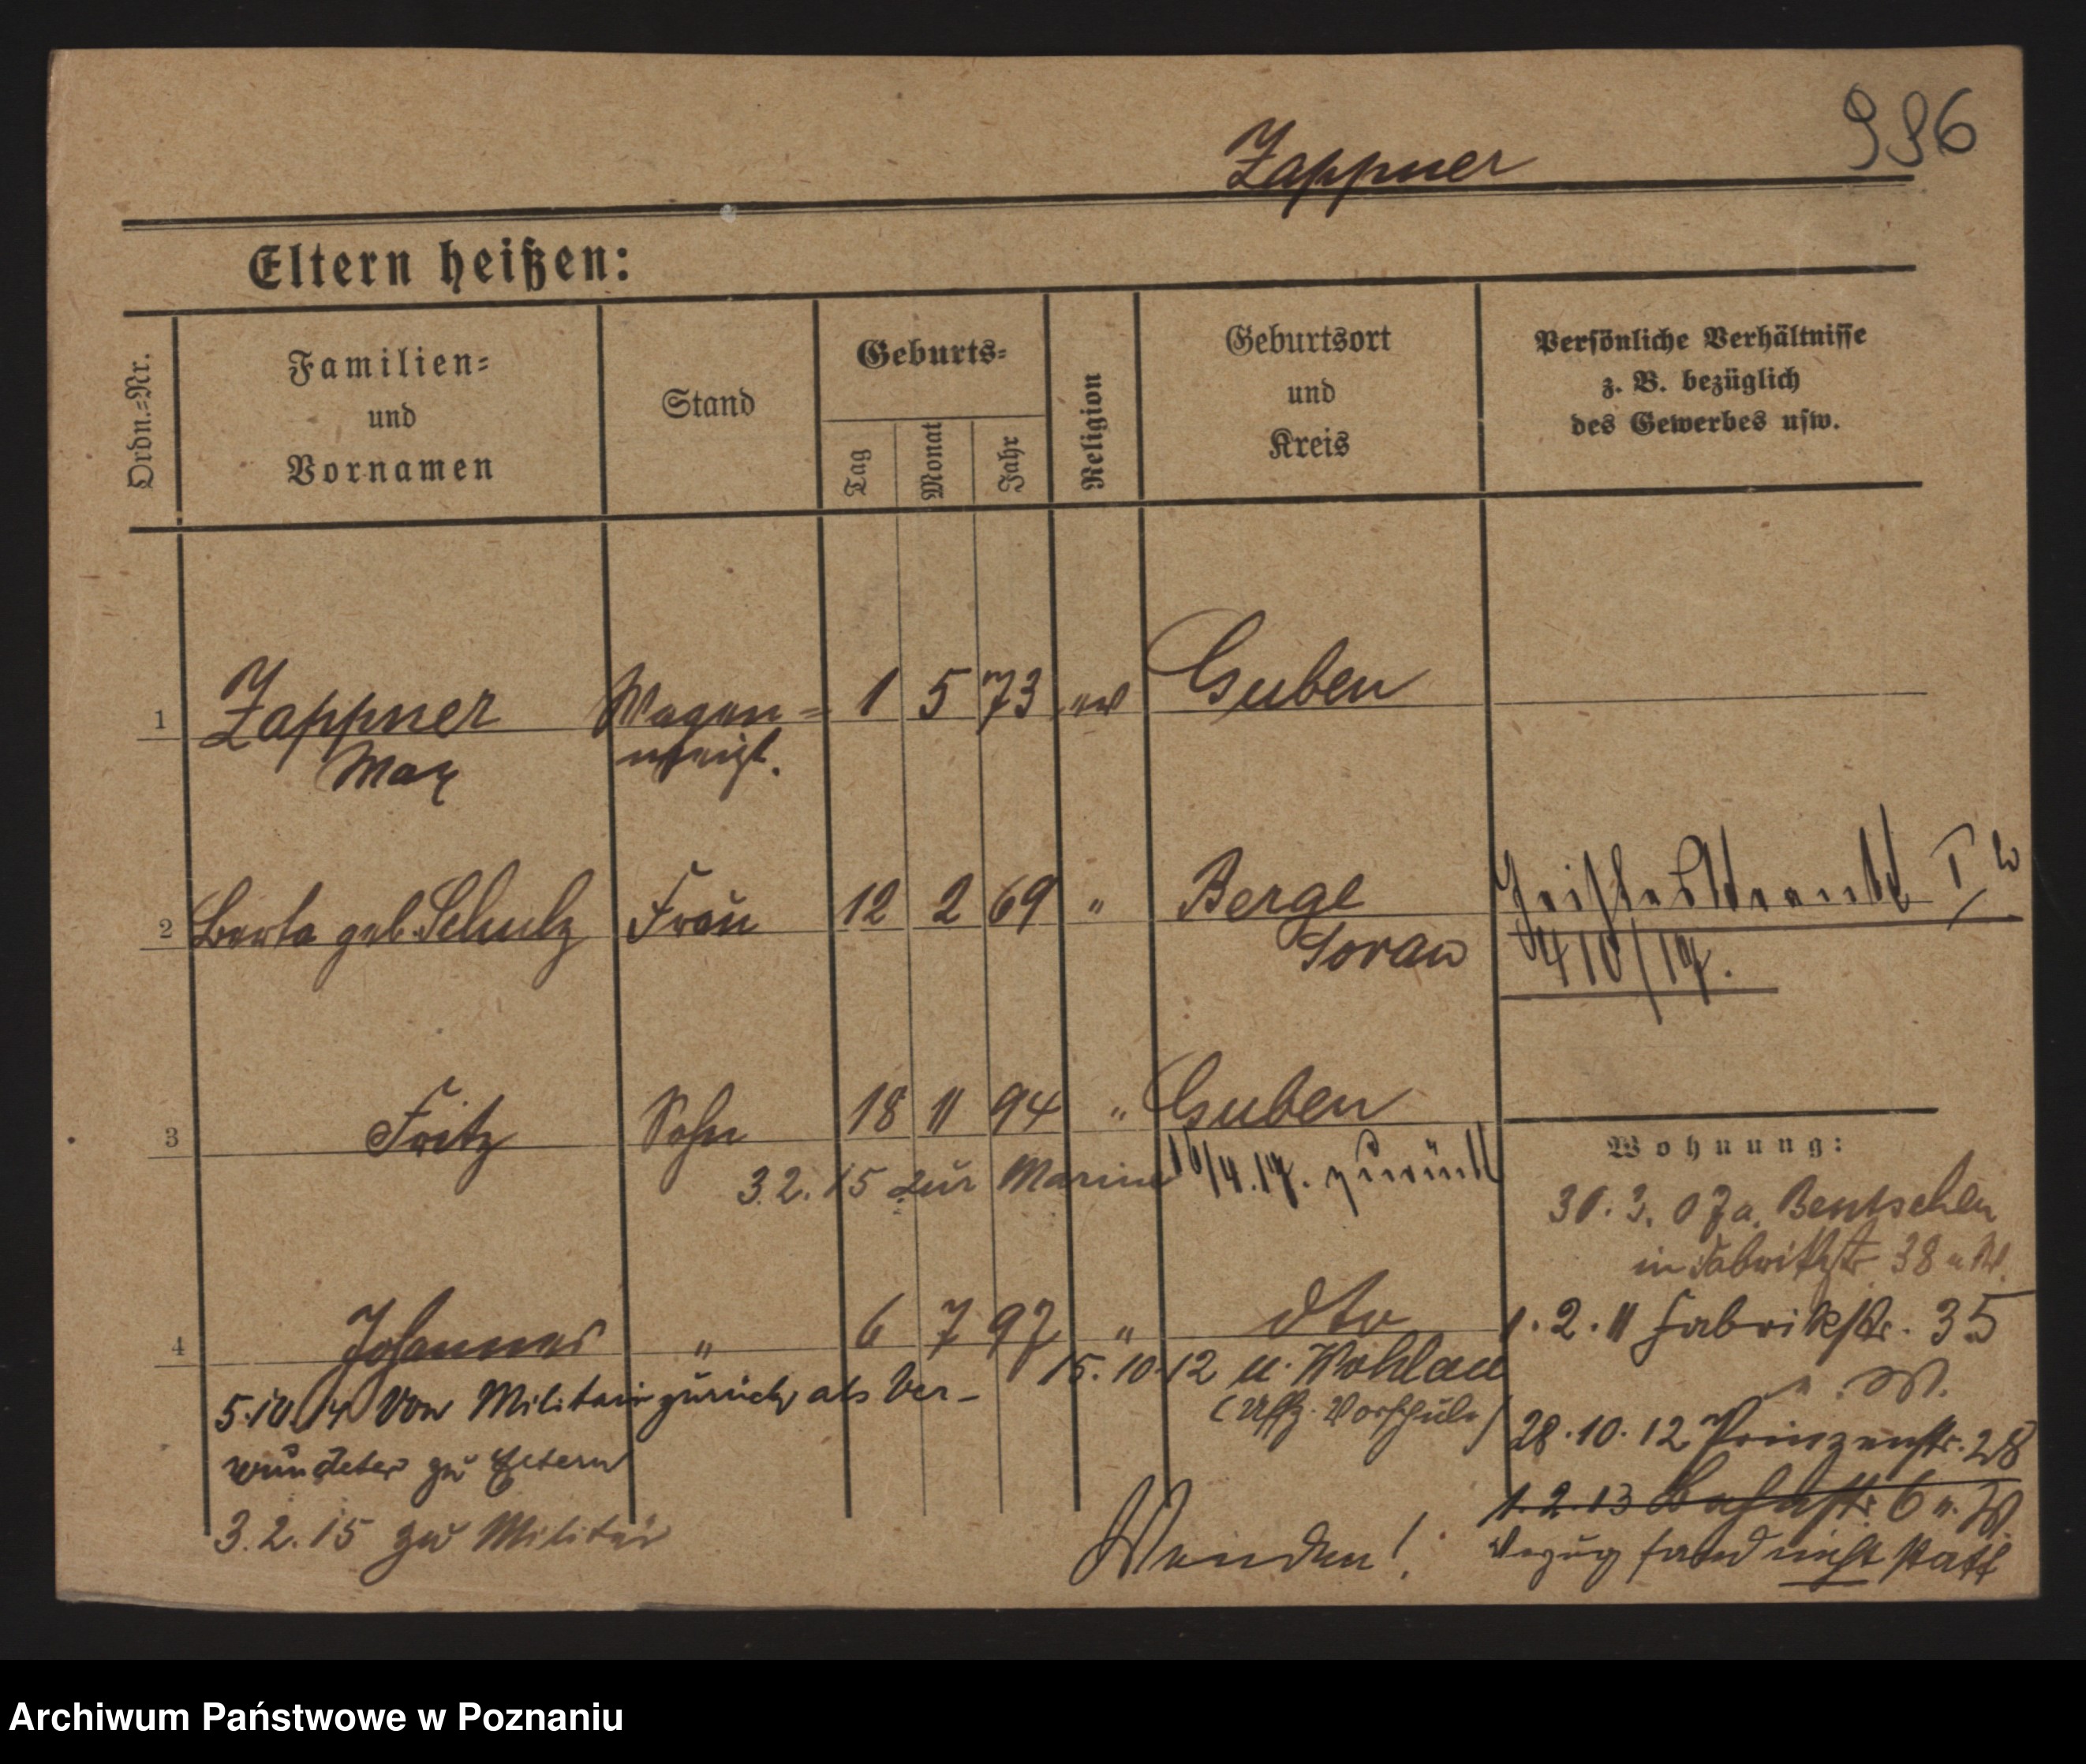 996
Zappner
Eltern heißen:
Ordn.-Nr.
Familien-
und
Vornamen
Stand
Geburts-
Tag
Monat
Jahr
Religion
Geburtsort
und
Kreis
Persönliche Verhältnisse
z. B. bezüglich
des Gewerbes usw.
1 Zappner Wagen- 1 5 73 ev Guben
Max
2 Berta geb. Schulz Frau 12 2 69 " Berge
Sorau
3 Fritz Sohn 18 11 94 " Guben
3.2.15 zur Marine 16/4.17. zurück
Wohnung:
30.3.07 a. Bentschen
in Fabrikstr. 38 u. W.
4 Johannes " 6 7 97 " dto
1.2.11 Fabrikstr. 35
u. W.
15.10.12 n. Wohlau
(Uffz. Vorschule)
5.10.14 von Militair zurück als Ver-
wundeter zu Eltern
3.2.15 zu Militär
28.10.12 Prinzenstr. 28
1.2.13 Bahnstr. 6 u. W.
Verzug fand nicht statt
Wenden!
Archiwum Państwowe w Poznaniu